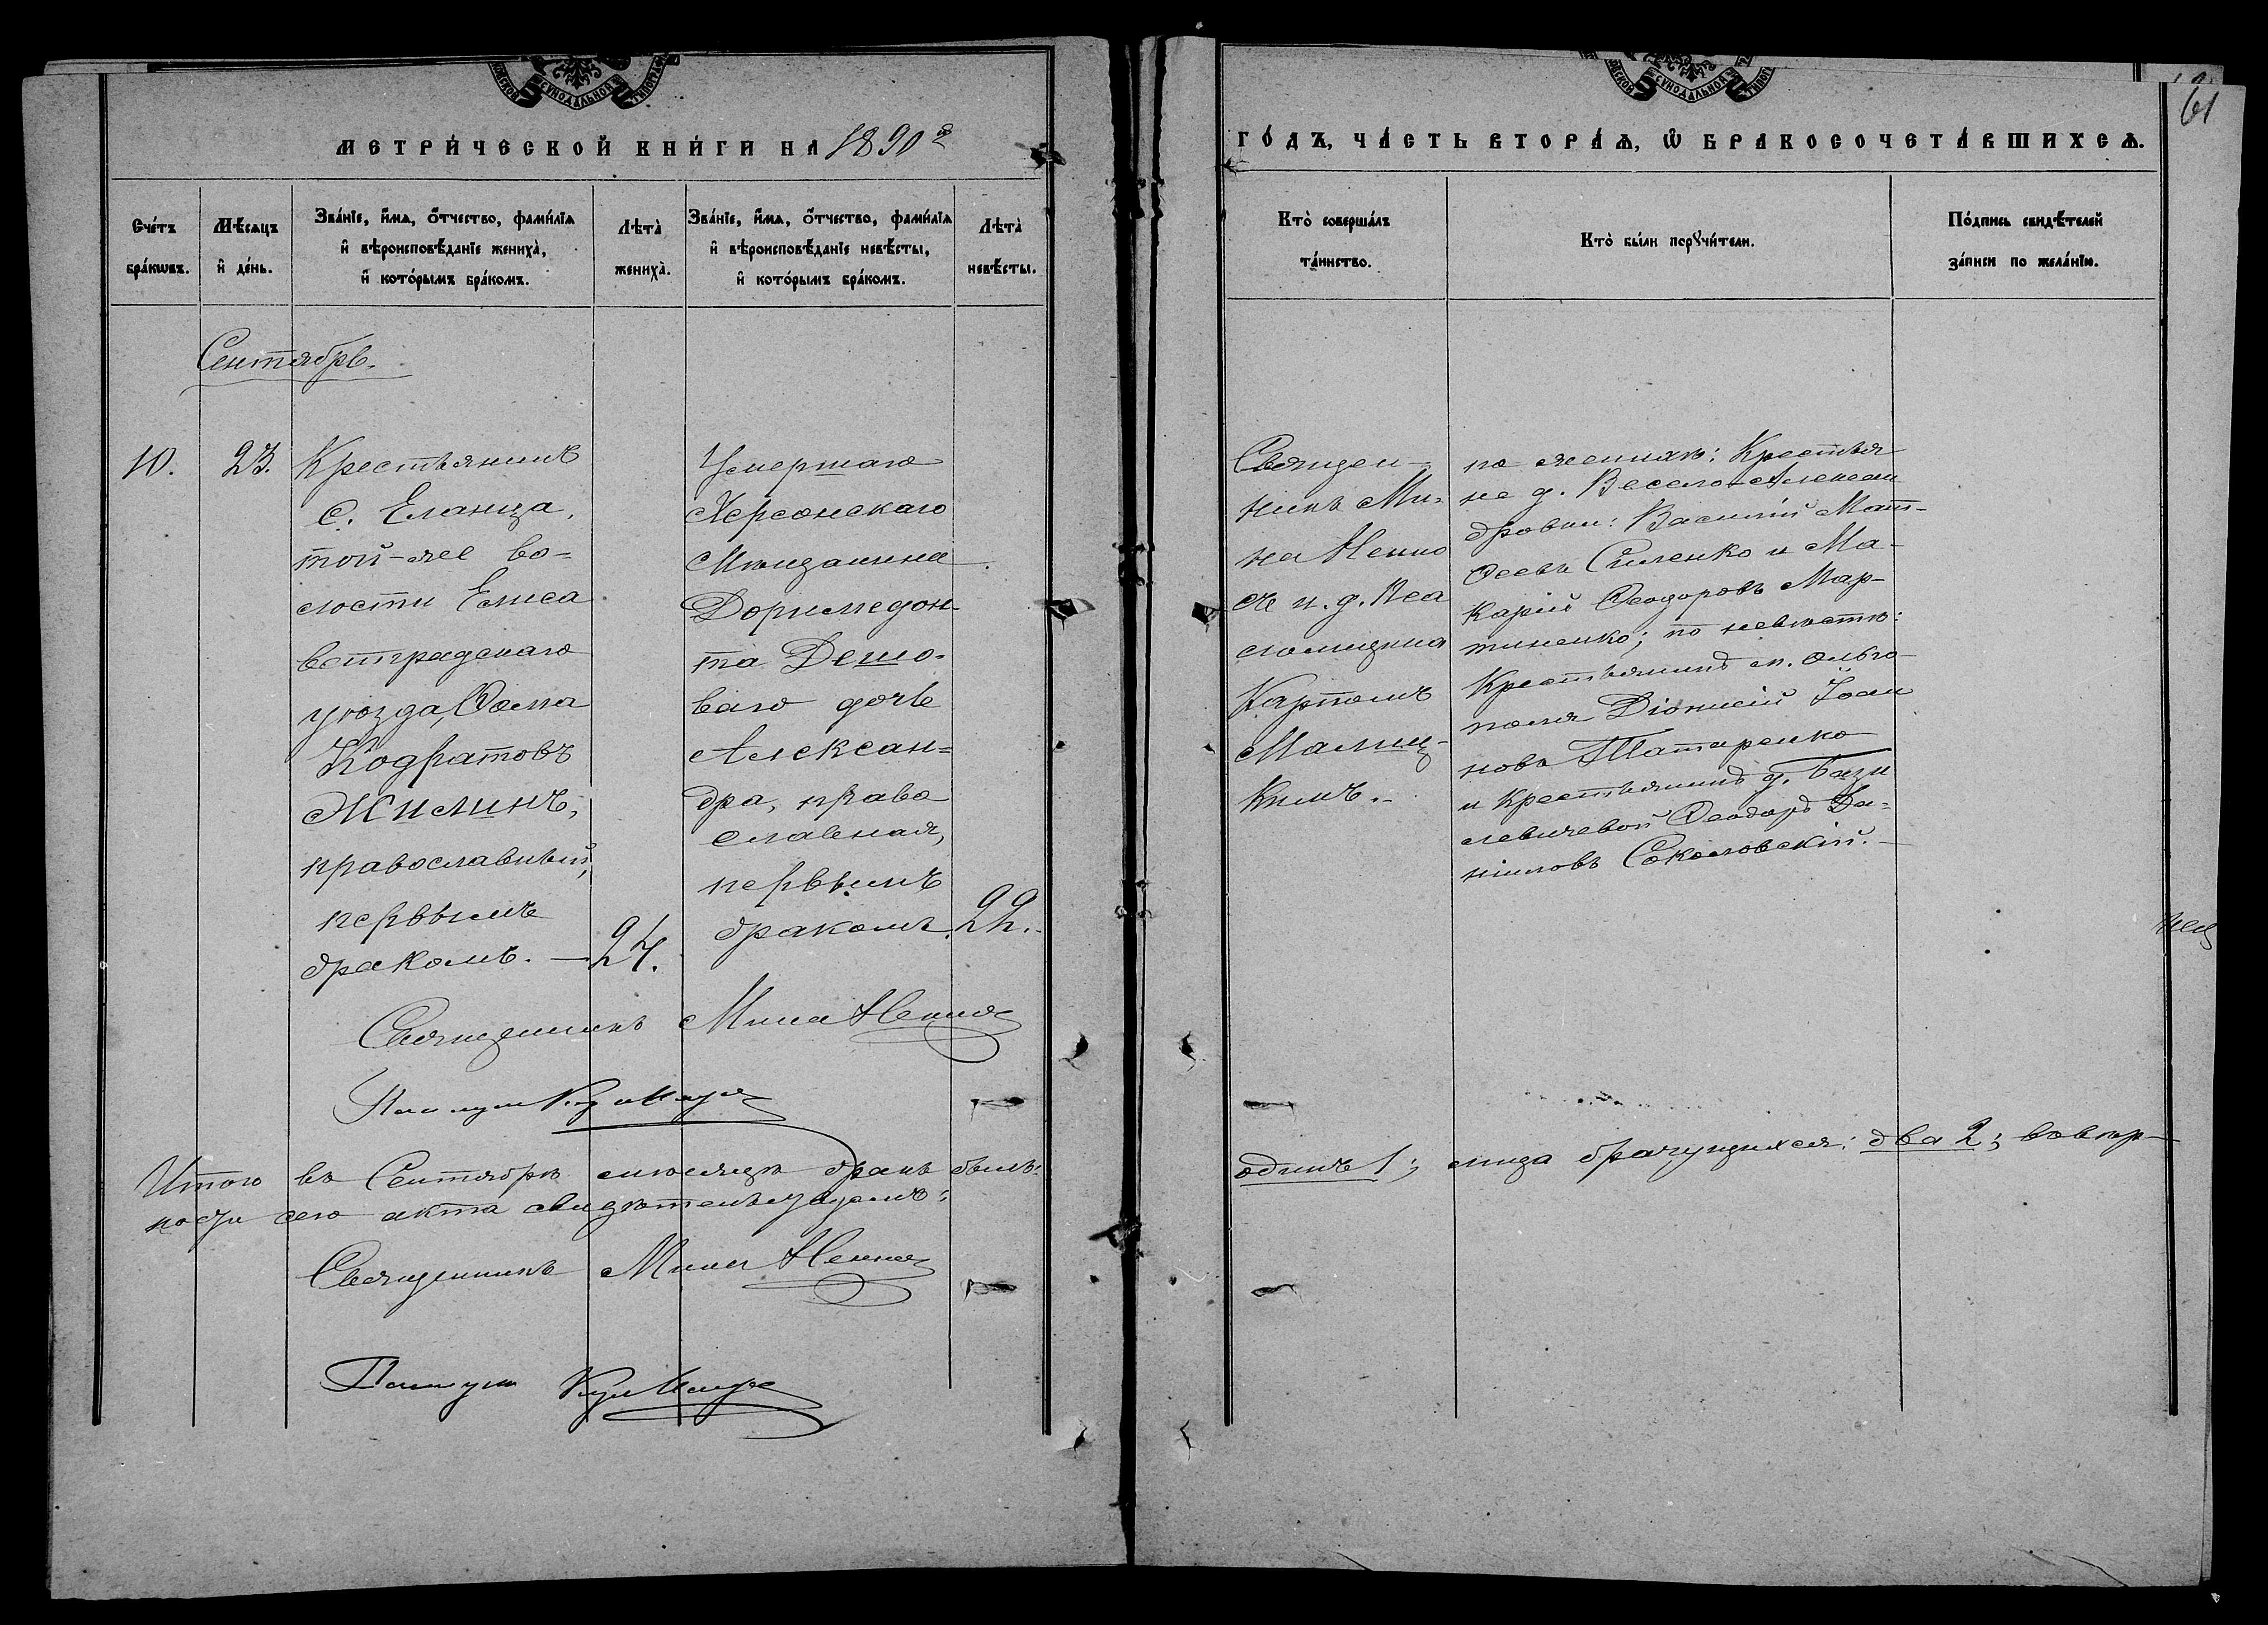 61
МЕТРИЧЕСКОЙ КНИГИ НА 1890й
ГОДЪ, ЧАСТЬ ВТОРАЯ, Ѡ БРАКОСОЧЕТАВШИХСЯ.
Счетъ браковъ.
Мѣсяцъ и день.
Званіе, имя, отчество, фамилія
и вѣроисповѣданіе жениха,
и которымъ бракомъ.
Лѣта
жениха.
Званіе, имя, отчество, фамилія
и вѣроисповѣданіе невѣсты,
и которымъ бракомъ.
Лѣта
невѣсты.
Кто совершалъ
таинство.
Кто были поручители.
Подпись свидѣтелей
записи по желанію.
Сентябрь.
10.
23.
Крестьянинъ
с. Еланца,
той-же во-
лости Елиса
ветградскаго
уѣзда, Ѳома
Кодратовъ
Жилинъ,
православный,
первымъ
бракомъ. —
24.
Умершаго
Херсонскаго
Мѣщанина
Доримедон-
та Дешо-
ваго дочь
Алексан-
дра, право
славная,
первымъ
бракомъ.
22.
Священ-
никъ Ми-
на Ненно
съ и. д. Пса
ломщика
Карпомъ
Малиц-
кимъ.-
по женихѣ: Крестья
не д. Весело-Алексан
дровки: Василій Мат-
ѳеевъ Силенко и Ма-
карій Ѳеодоровъ Мар-
тиненко; по невѣстѣ:
Крестьянинъ м. Ольго
поля Діонисій Іоан
новъ Татаренко
и крестьянинъ д. Бази
левичевой Ѳеодоръ Да-
ніиловъ Соколовскій.-
Священникъ Мина Ненно
Итого въ Сентябрѣ мѣсяцѣ бракъ былъ:
одинъ 1; лица брачущихся: два 2; въ вѣр-
ности сего акта свидѣтельствуемъ:
Священникъ Мина Ненно